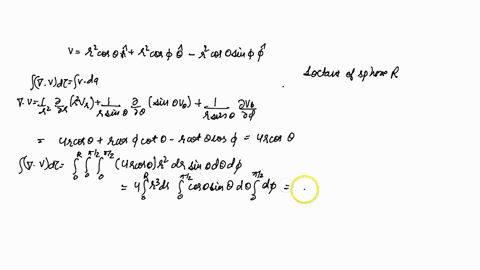 V = r² cos θ r̂ + r² cos φ θ̂ − r² cos θ sin φ φ̂
∫(∇·V)dτ = ∫v·da
1 octant of sphere R
∇·V = 1/r² ∂/∂r (r²Vr) + 1/(r sin θ) ∂/∂θ (sin θ Vθ) + 1/(r sin θ) ∂Vφ/∂φ
= 4r cos θ + r cos φ cot θ − r cot θ cos φ = 4r cos θ
∫(∇·V)dτ = ∫₀ᴿ ∫₀^π/2 ∫₀^π/2 (4r cos θ) r² dr sin θ dθ dφ
= 4 ∫₀ᴿ r³ dr ∫₀^π/2 cos θ sin θ dθ ∫₀^π/2 dφ =